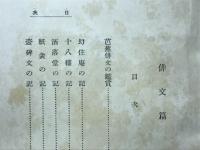 目次
俳文篇
目次
芭蕉俳文の鑑賞
幻住庵の記
十八樓の記
洒落堂の記
紙衾の記
壺碑文の記